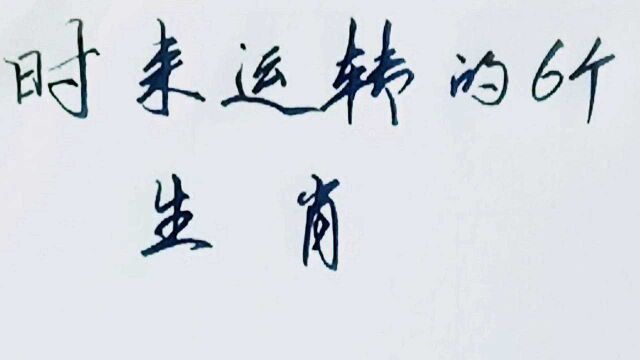 时来运转的6个
生肖